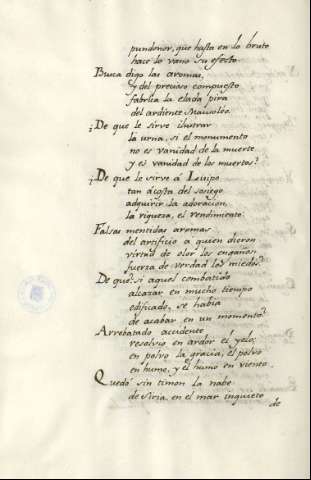 pundonor, que hasta en lo bruto
hace lo vano su efecto.
Busca digo las aromas,
y del precioso compuesto
fabrica la elada pira
del ardiente Mausoleo.
¿De que le sirve ilustrar
la urna, si el monumento
no es vanidad de la muerte
y es vanidad de los muertos?
¿De que le sirve á
tan á costa del sosiego
adquirir la adoracion,
la riqueza, el rendimento
Falsas mentidas aromas
del artificio a quien dieron
virtud de olor los engaños
fuerza de verdad los miedos
De que? si aquel combatido
alcazar en mucho tiempo
edificado, se habia
de acabar en un momento?
Arrebatado accidente
resolvio en ardor el yelo;
en polvo la gracia, el polvo
en humo, y el humo en viento.
Quedó sin timon la nabe
de Siria, en el mar inquieto
de